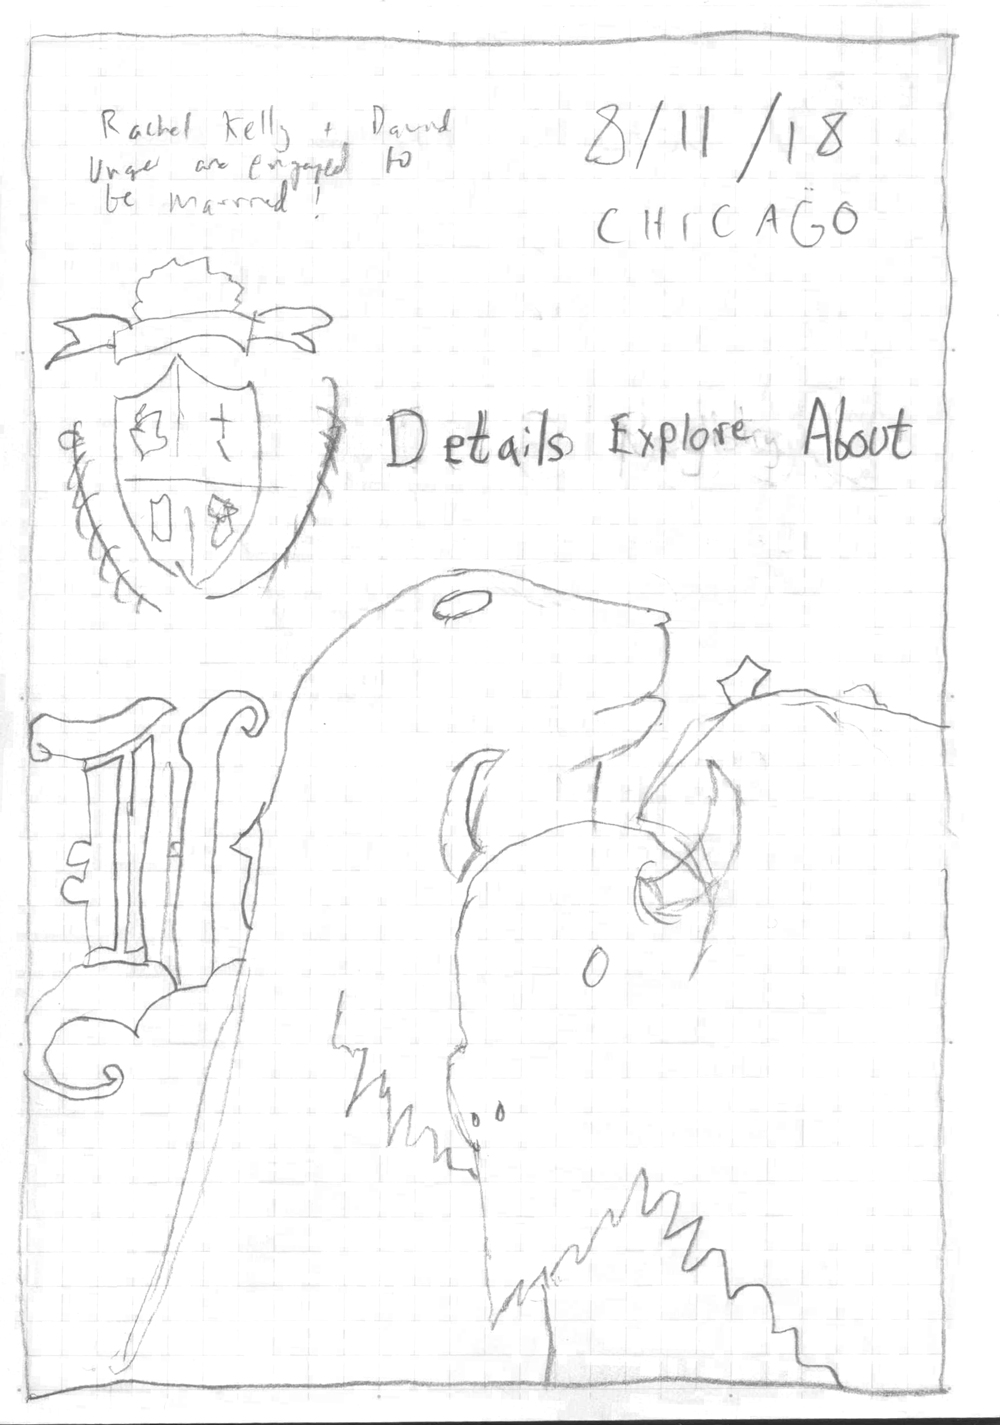 Rachel Kelly + David
Unger are engaged to
be married!
8/11/18
CHICAGO
Details Explore About